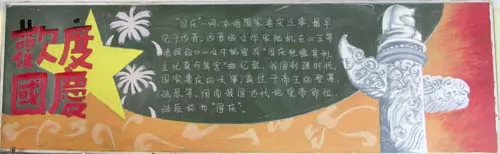 歡度
國慶
"国庆"一词,本指国家喜庆之事,最早
见于西晋。西晋的文学家陆机在《五等
诸侯论》一文中就曾有"国庆独飨其利,
主忧莫与其害"的记载,我国封建时代、
国家喜庆的大事,莫过于帝王的登基、
诞辰等。因而我国古代把皇帝即位、
诞辰称为"国庆"。